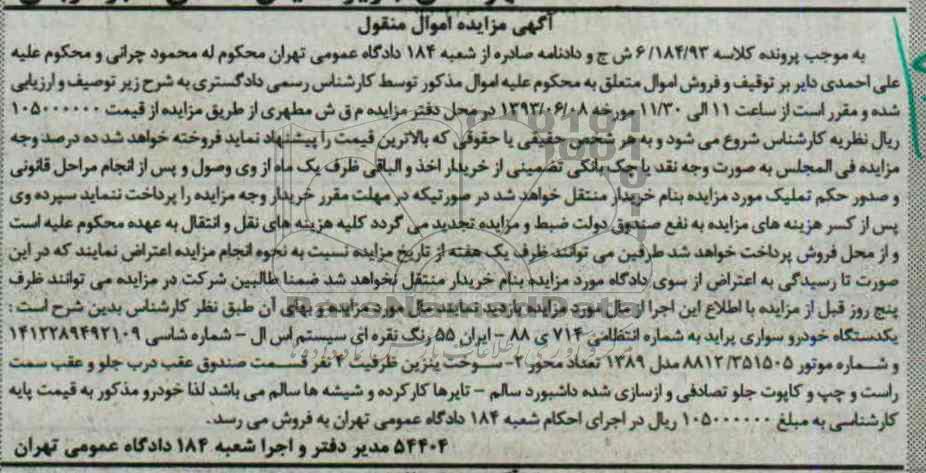 آگهی مزایده اموال منقول
به موجب پرونده کلاسه ۶/۱۸۴/۹۳ ش ج و دادنامه صادره از شعبه ۱۸۴ دادگاه عمومی تهران محکوم له محمود چرانی و محکوم علیه
علی احمدی دایر بر توقیف و فروش اموال متعلق به محکوم علیه اموال مذکور توسط کارشناس رسمی دادگستری به شرح زیر توصیف و ارزیابی
شده و مقرر است از ساعت ۱۱ الی ۱۱/۳۰ مورخه ۱۳۹۳/۰۶/۰۸ در محل دفتر مزایده م ق ش مطهری از طریق مزایده از قیمت ۱۰۵۰۰۰۰۰۰
ریال نظریه کارشناس شروع می شود و به هر شخص حقیقی یا حقوقی که بالاترین قیمت را پیشنهاد نماید فروخته خواهد شد ده درصد وجه
مزایده فی المجلس به صورت وجه نقد یا چک بانکی تضمینی از خریدار اخذ و الباقی ظرف یک ماه از وی وصول و پس از انجام مراحل قانونی
و صدور حکم تملیک مورد مزایده بنام خریدار منتقل خواهد شد در صورتیکه در مهلت مقرر خریدار وجه مزایده را پرداخت ننماید سپرده وی
پس از کسر هزینه های مزایده به نفع صندوق دولت ضبط و مزایده تجدید می گردد کلیه هزینه های نقل و انتقال به عهده محکوم علیه است
و از محل فروش پرداخت خواهد شد طرفین می توانند ظرف یک هفته از تاریخ مزایده نسبت به نحوه انجام مزایده اعتراض نمایند که در این
صورت تا رسیدگی به اعتراض از سوی دادگاه مورد مزایده بنام خریدار منتقل نخواهد شد ضمنا طالبین شرکت در مزایده می توانند ظرف
پنج روز قبل از مزایده با اطلاع این اجرا از مال مورد مزایده بازدید نمایند مال مورد مزایده و بهای آن طبق نظر کارشناس بدین شرح است :
یکدستگاه خودرو سواری پراید به شماره انتظامی ۷۱۴ ی ۸۸ - ایران ۵۵ رنگ نقره ای سیستم اس ال - شماره شاسی ۱۴۱۲۲۸۹۴۹۲۱۰۹
و شماره موتور ۸۸۱۲/۳۵۱۵۰۵ مدل ۱۳۸۹ تعداد محور ۲- سوخت بنزین ظرفیت ۴ نفر قسمت صندوق عقب درب جلو و عقب سمت
راست و چپ و کاپوت جلو تصادفی و ازسازی شده داشبورد سالم - تایرها کار کرده و شیشه ها سالم می باشد لذا خودرو مذکور به قیمت پایه
کارشناسی به مبلغ ۱۰۵۰۰۰۰۰۰ ریال در اجرای احکام شعبه ۱۸۴ دادگاه عمومی تهران به فروش می رسد.
۵۴۴۰۴ مدیر دفتر و اجرا شعبه ۱۸۴ دادگاه عمومی تهران
ParsNamadData